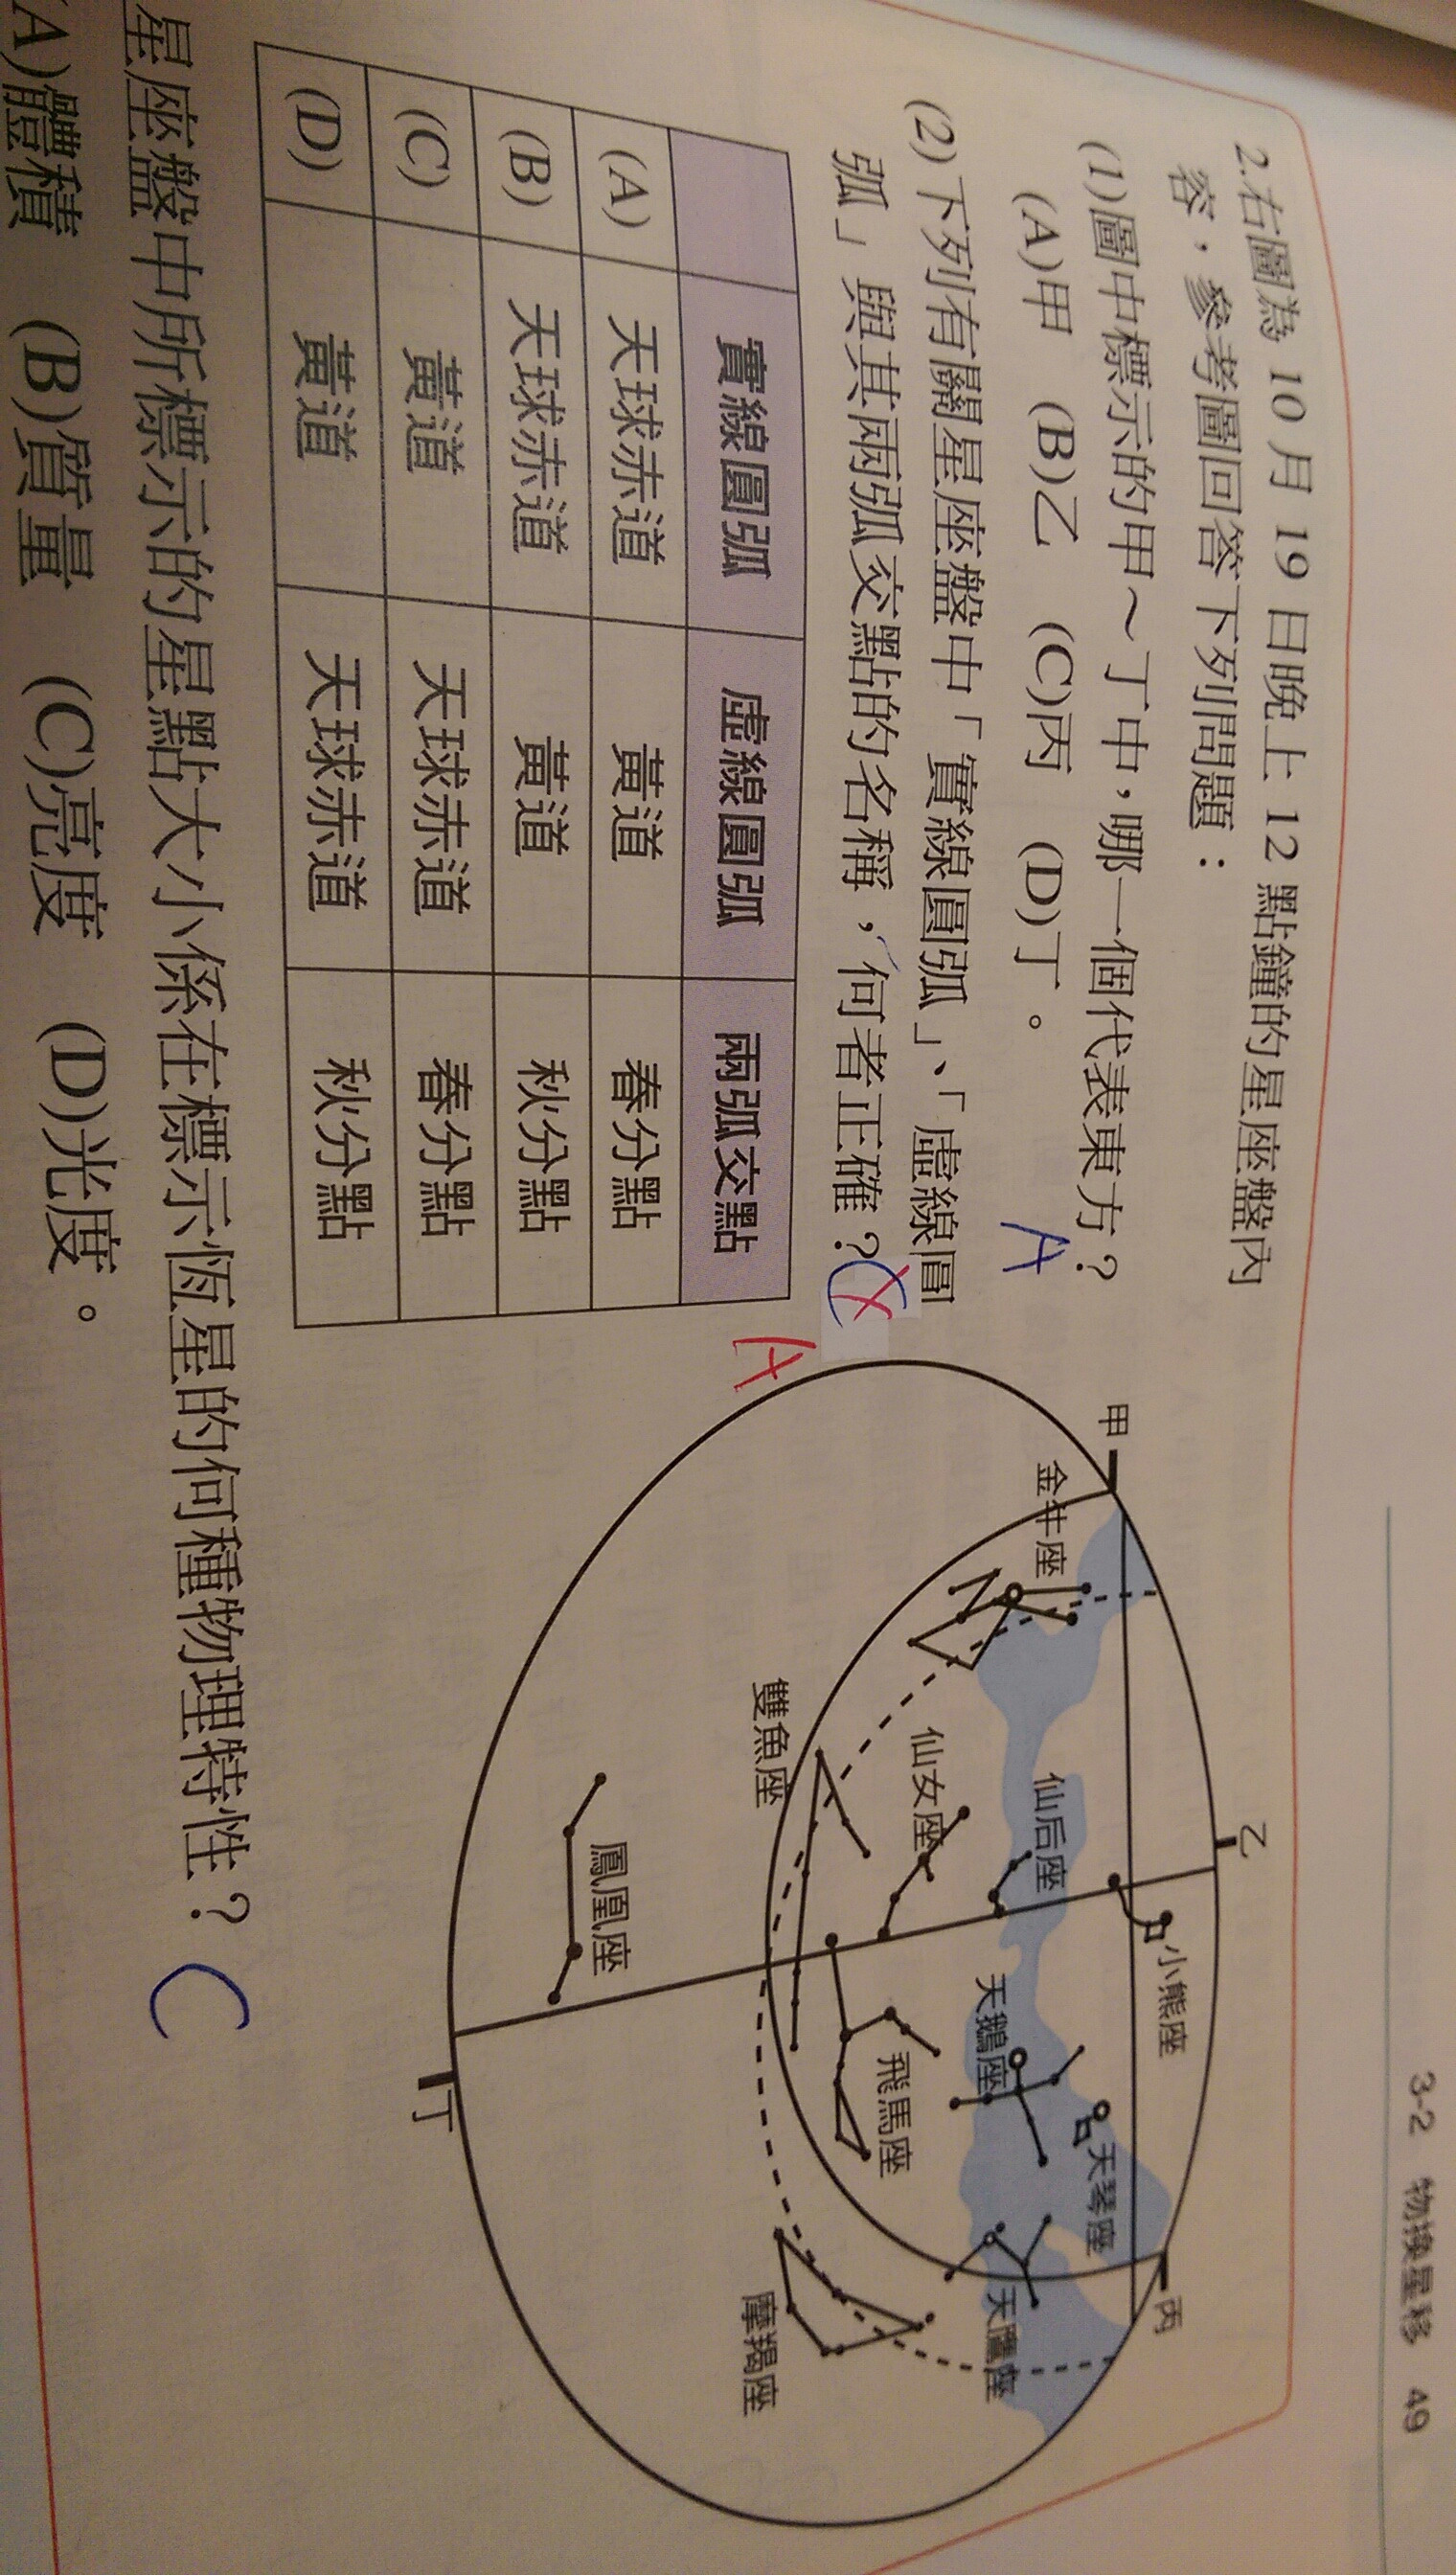 3-2 物換星移 49
2.右圖為 10 月 19 日晚上 12 點鐘的星座盤內
容，參考圖回答下列問題：
(1)圖中標示的甲～丁中，哪一個代表東方？
(A)甲 (B)乙 (C)丙 (D)丁。
A
(2)下列有關星座盤中「實線圓弧」、「虛線圓
弧」與其兩弧交點的名稱，何者正確？
A
實線圓弧 虛線圓弧 兩弧交點
(A) 天球赤道 黃道 春分點
(B) 天球赤道 黃道 秋分點
(C) 黃道 天球赤道 春分點
(D) 黃道 天球赤道 秋分點
甲
乙
丙
丁
金牛座
雙魚座
仙女座
仙后座
小熊座
天鵝座
天琴座
飛馬座
天鷹座
摩羯座
鳳凰座
星座盤中所標示的星點大小係在標示恆星的何種物理特性？
C
A)體積 (B)質量 (C)亮度 (D)光度。